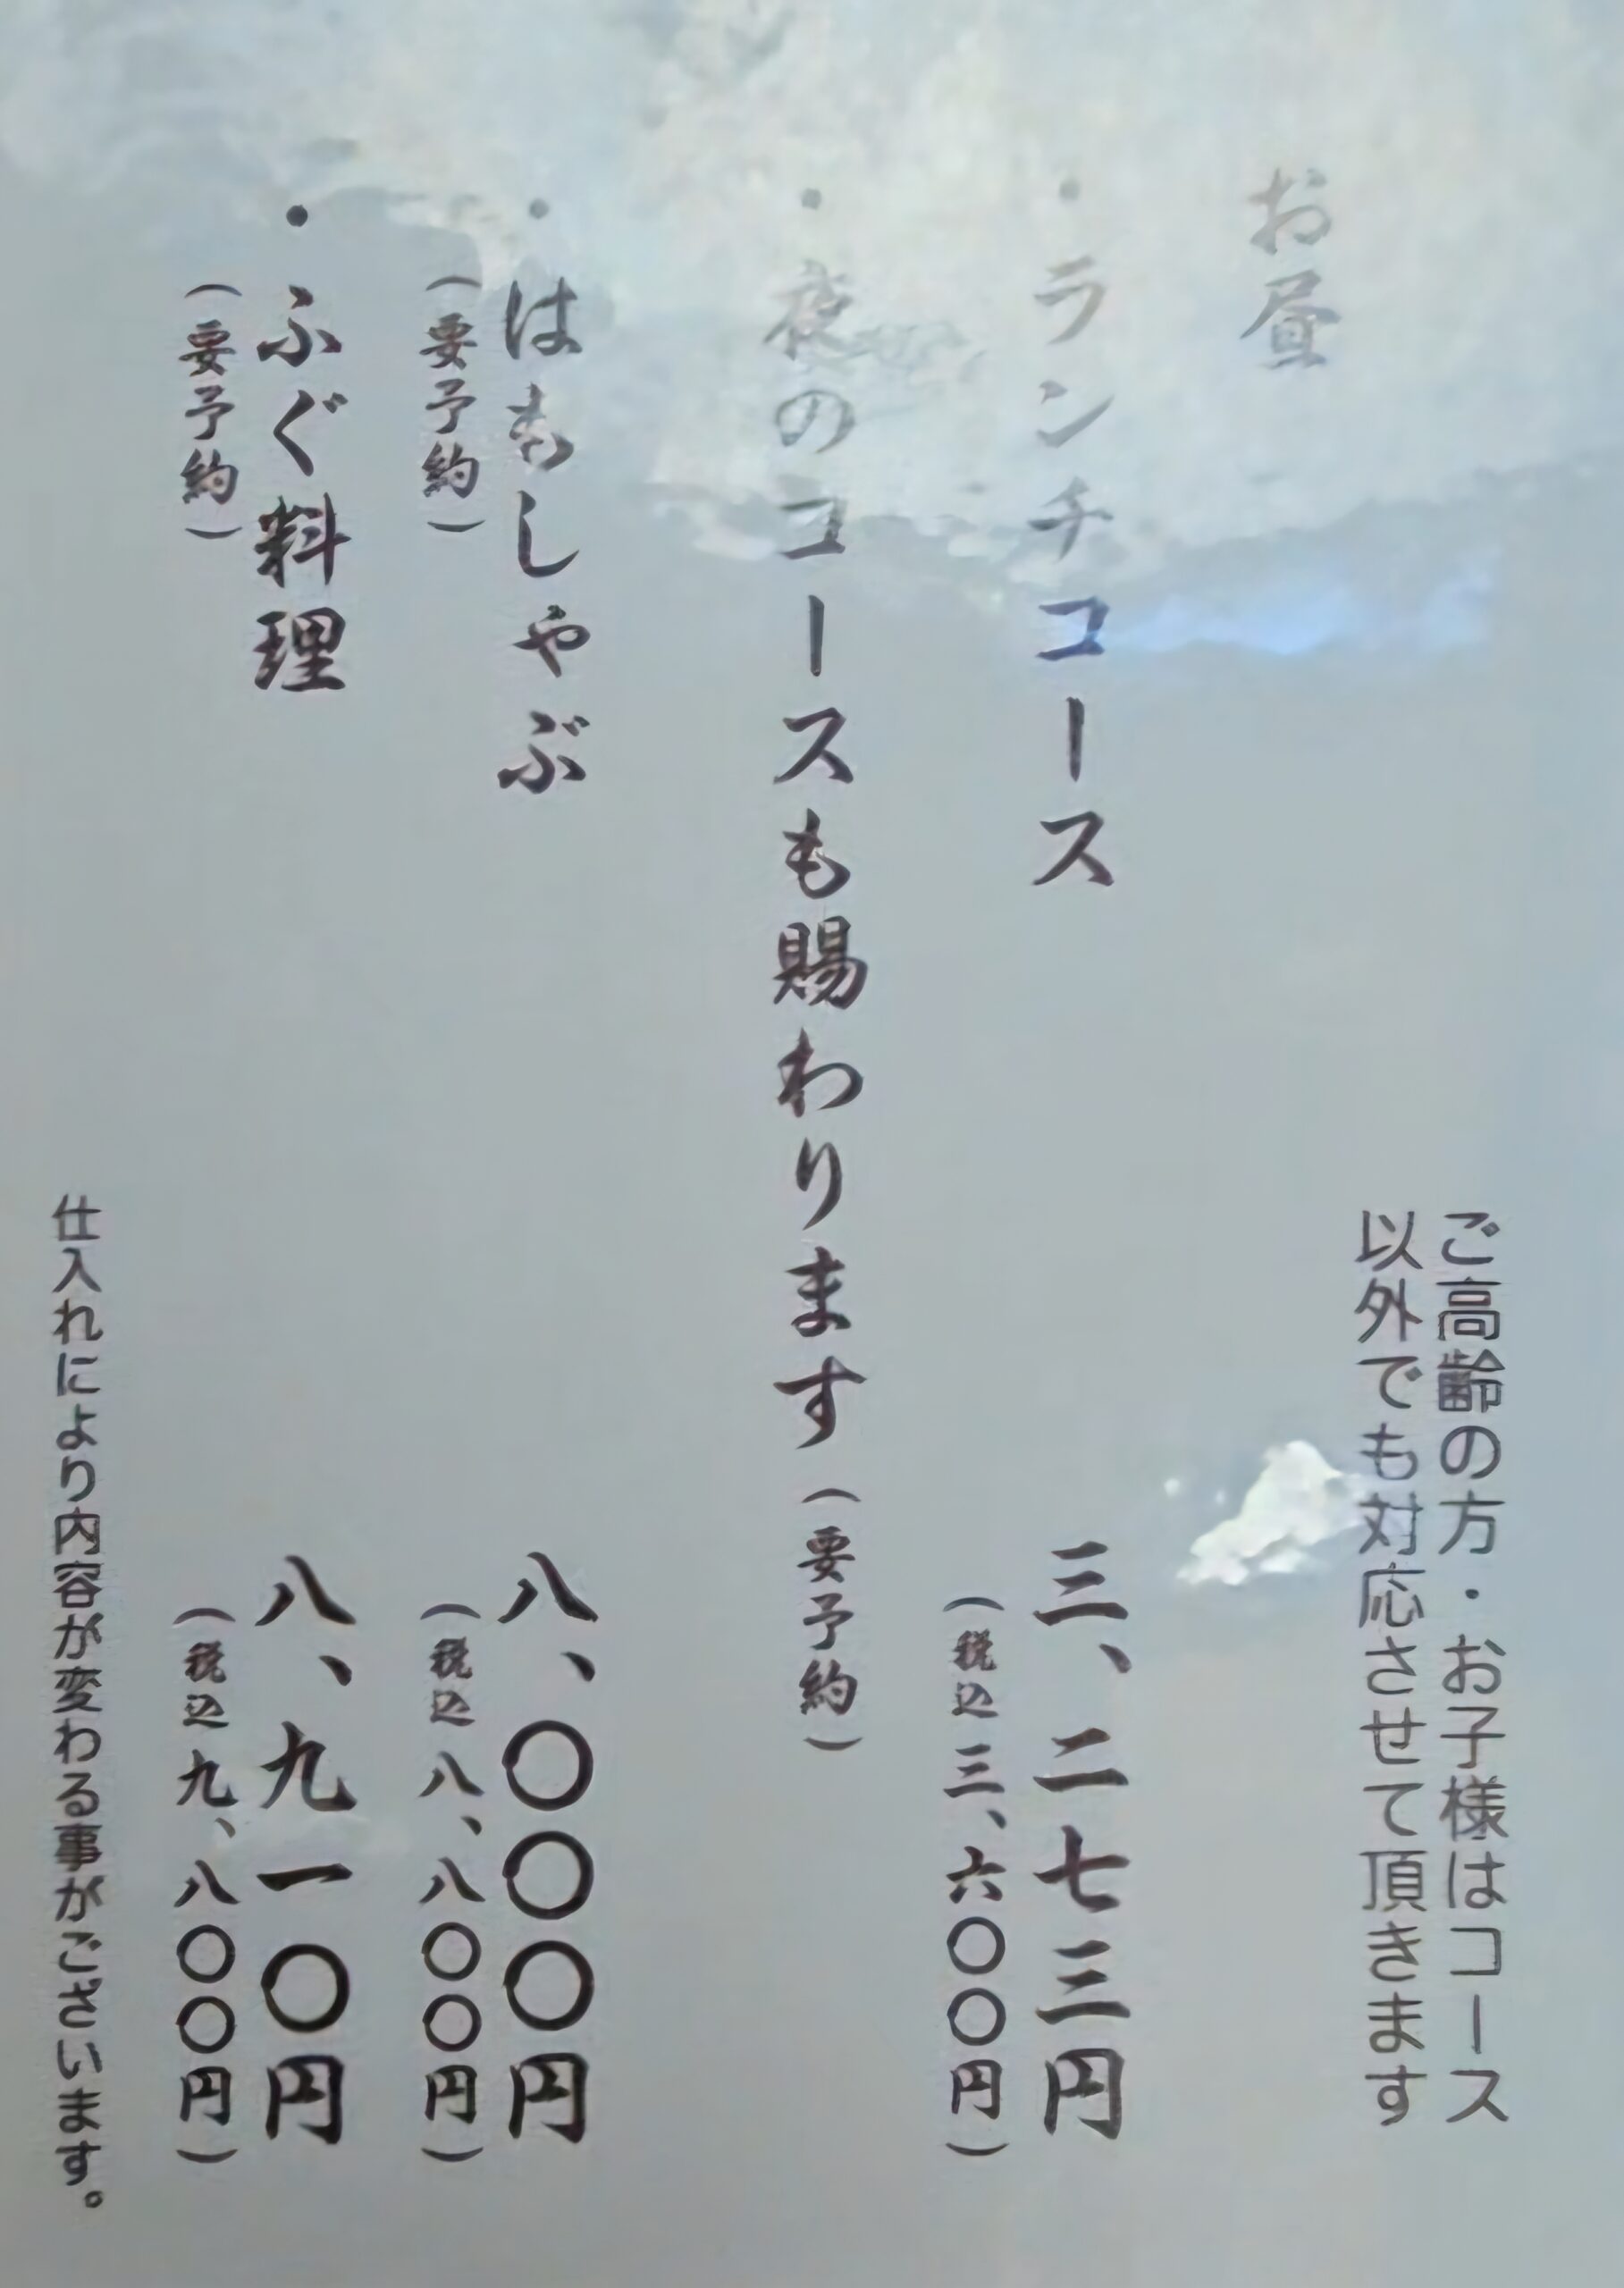 ご高齢の方・お子様はコース
以外でも対応させて頂きます
お昼
・ランチコース
三、二七三円
（税込三、六〇〇円）
・夜のコースも賜わります（要予約）
・はもしゃぶ
八、〇〇〇円
（要予約）
（税込八、八〇〇円）
・ふぐ料理
八、九一〇円
（要予約）
（税込九、八〇〇円）
仕入れにより内容が変わる事がございます。